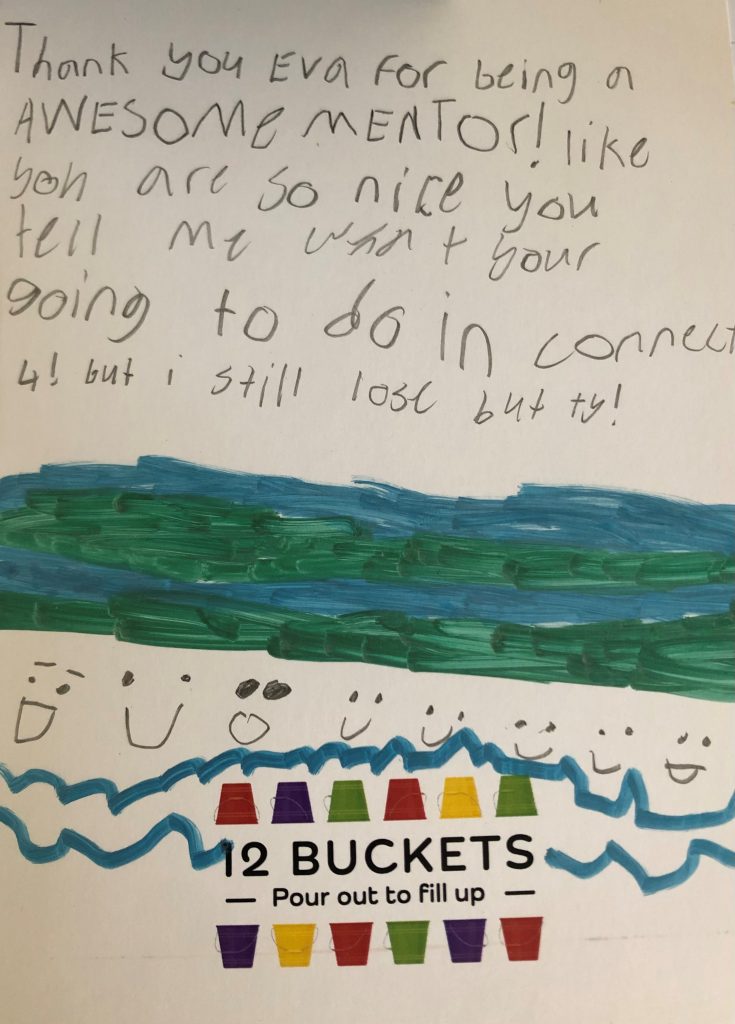 Thank you Eva For being a
AWESOMe MENTOr! like
yoh are so nice you
tell me what your
going to do in connect
4! but i still lose but ty!
12 BUCKETS
— Pour out to fill up —